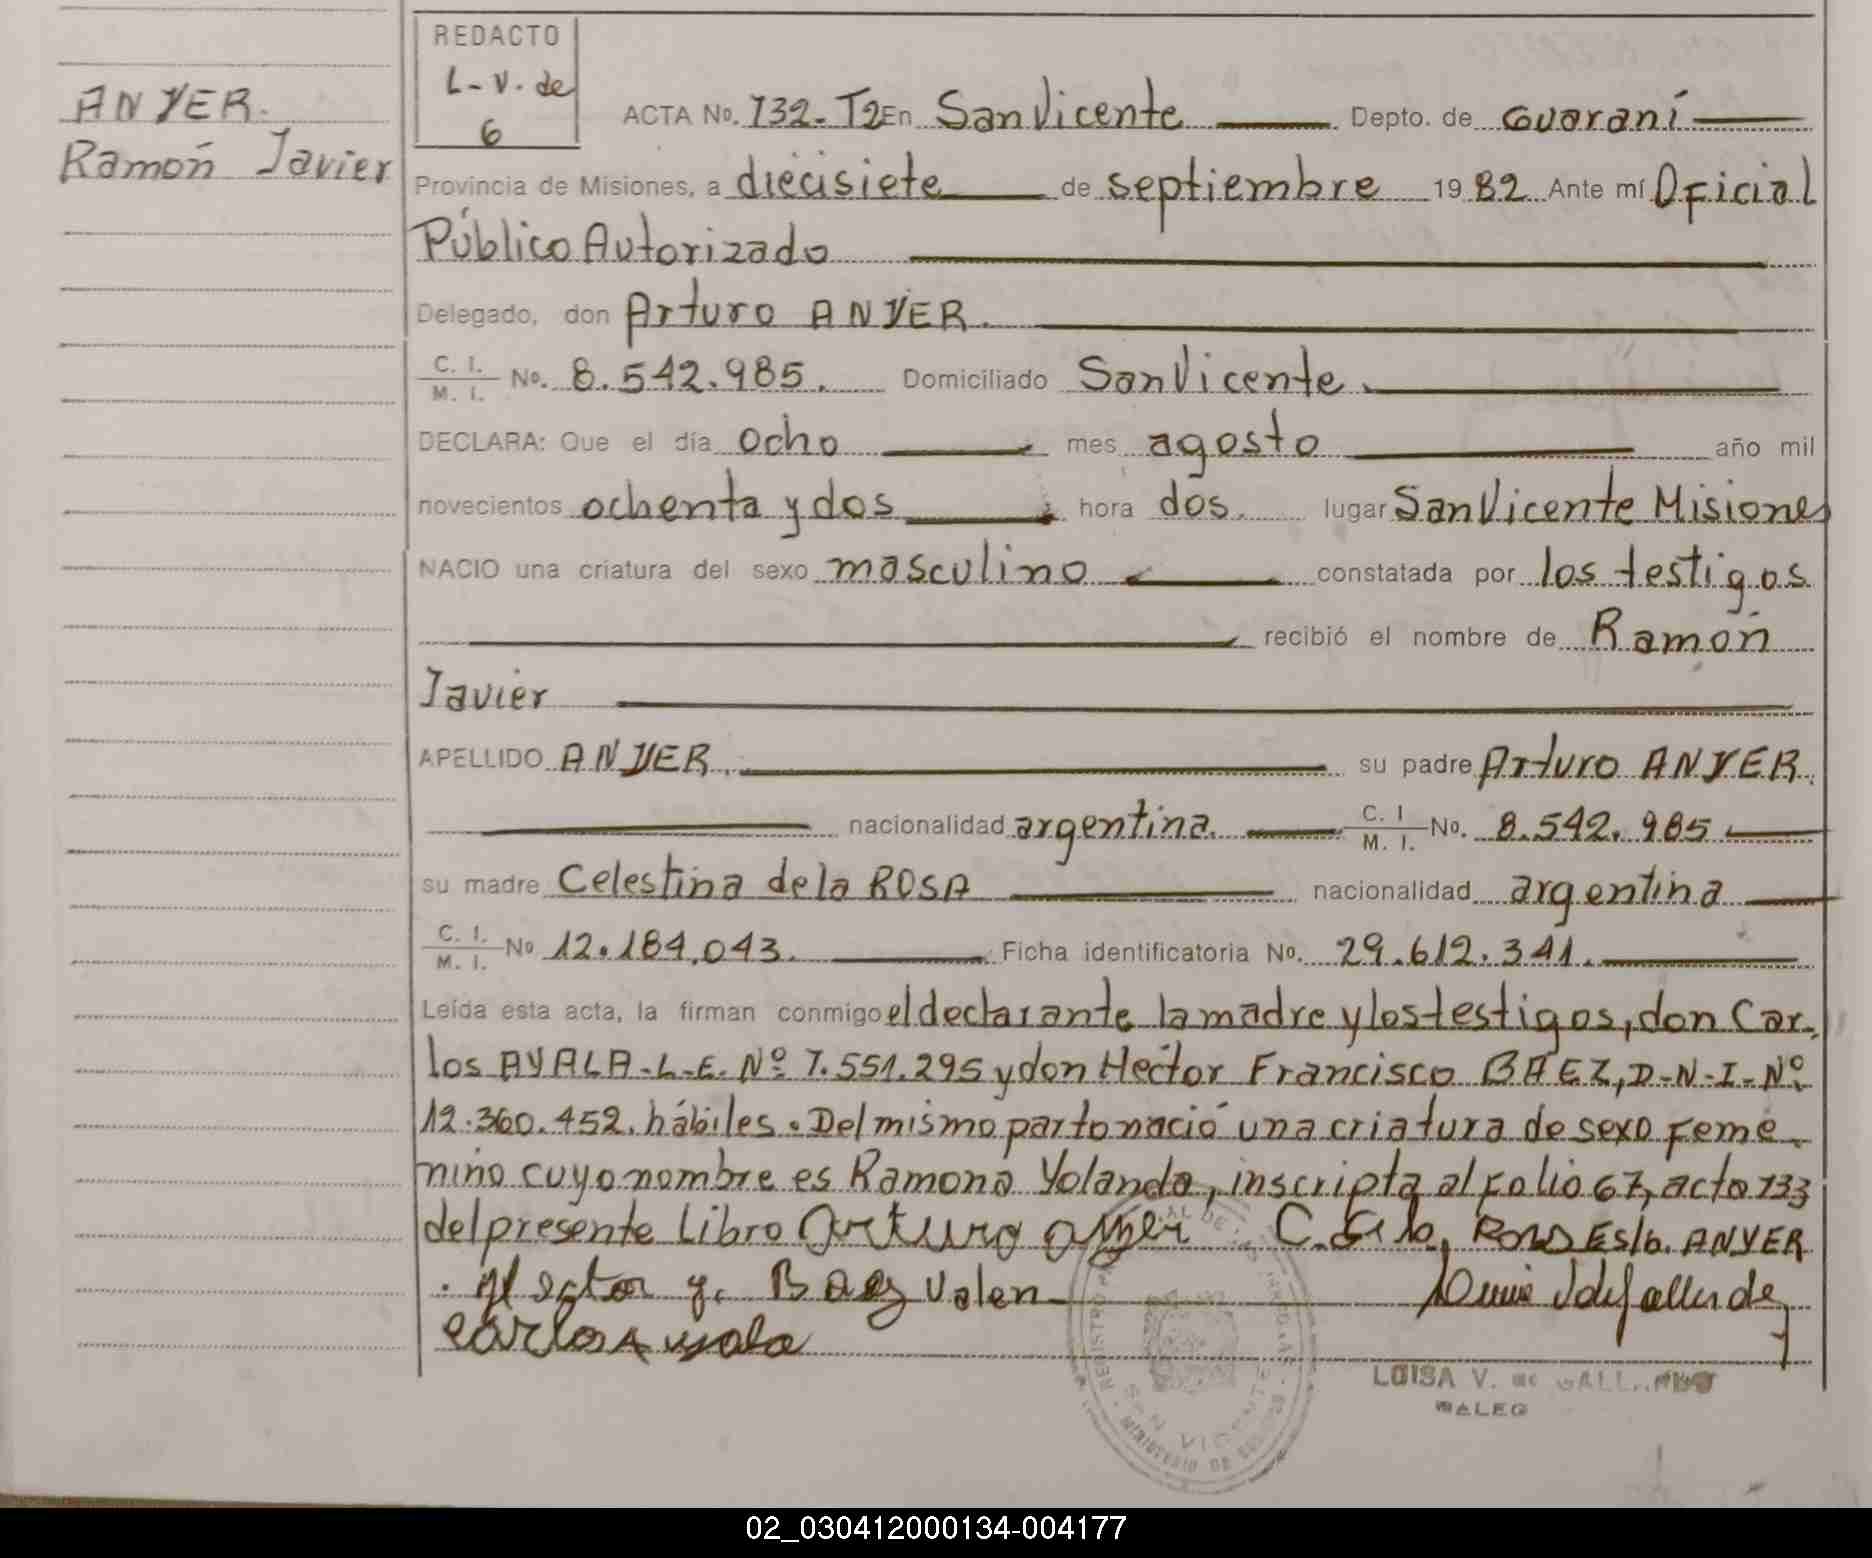 REDACTO
L-V. de
6
ANYER.
Ramón Javier
ACTA No. 132-T2 En San Vicente Depto. de Guaraní
Provincia de Misiones, a diecisiete de septiembre 1982 Ante mí Oficial
Público Autorizado
Delegado, don Arturo ANYER.
C. I. / M. I. No. 8.542.985. Domiciliado San Vicente.
DECLARA: Que el día ocho mes agosto año mil
novecientos ochenta y dos hora dos. lugar San Vicente Misiones
NACIO una criatura del sexo masculino constatada por los testigos
recibió el nombre de Ramón
Javier
APELLIDO ANYER. su padre Arturo ANYER.
nacionalidad argentina. C. I / M. I. No. 8.542.985
su madre Celestina de la ROSA nacionalidad argentina
C. I. / M. I. No 12.184.043. Ficha identificatoria No. 29.612.341.
Leída esta acta, la firman conmigo el declarante la madre y los testigos, don Car-
los AYALA-L-E. Nº 7.551.295 y don Héctor Francisco BAEZ, D-N-I-Nº
12.360.452. hábiles. Del mismo parto nació una criatura de sexo feme-
nino cuyo nombre es Ramona Yolanda, inscripta al folio 67, acta 133
del presente Libro Arturo anyer ANYER
Baez Valen
Carlos Ayala
LUISA V. DE
REGISTRO
SAN VICENTE
MINISTERIO DE GOBIERNO
02_030412000134-004177